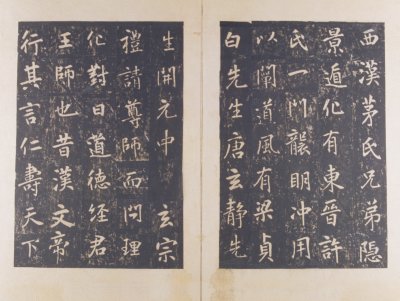 西漢茅氏兄弟隱
景遁化有東晉許
氏一門襲明沖用
以闡道風有梁貞
白先生唐玄靜先
生開元中 玄宗
禮請尊師而問理
化對曰道德經君
王師也昔漢文帝
行其言仁壽天下